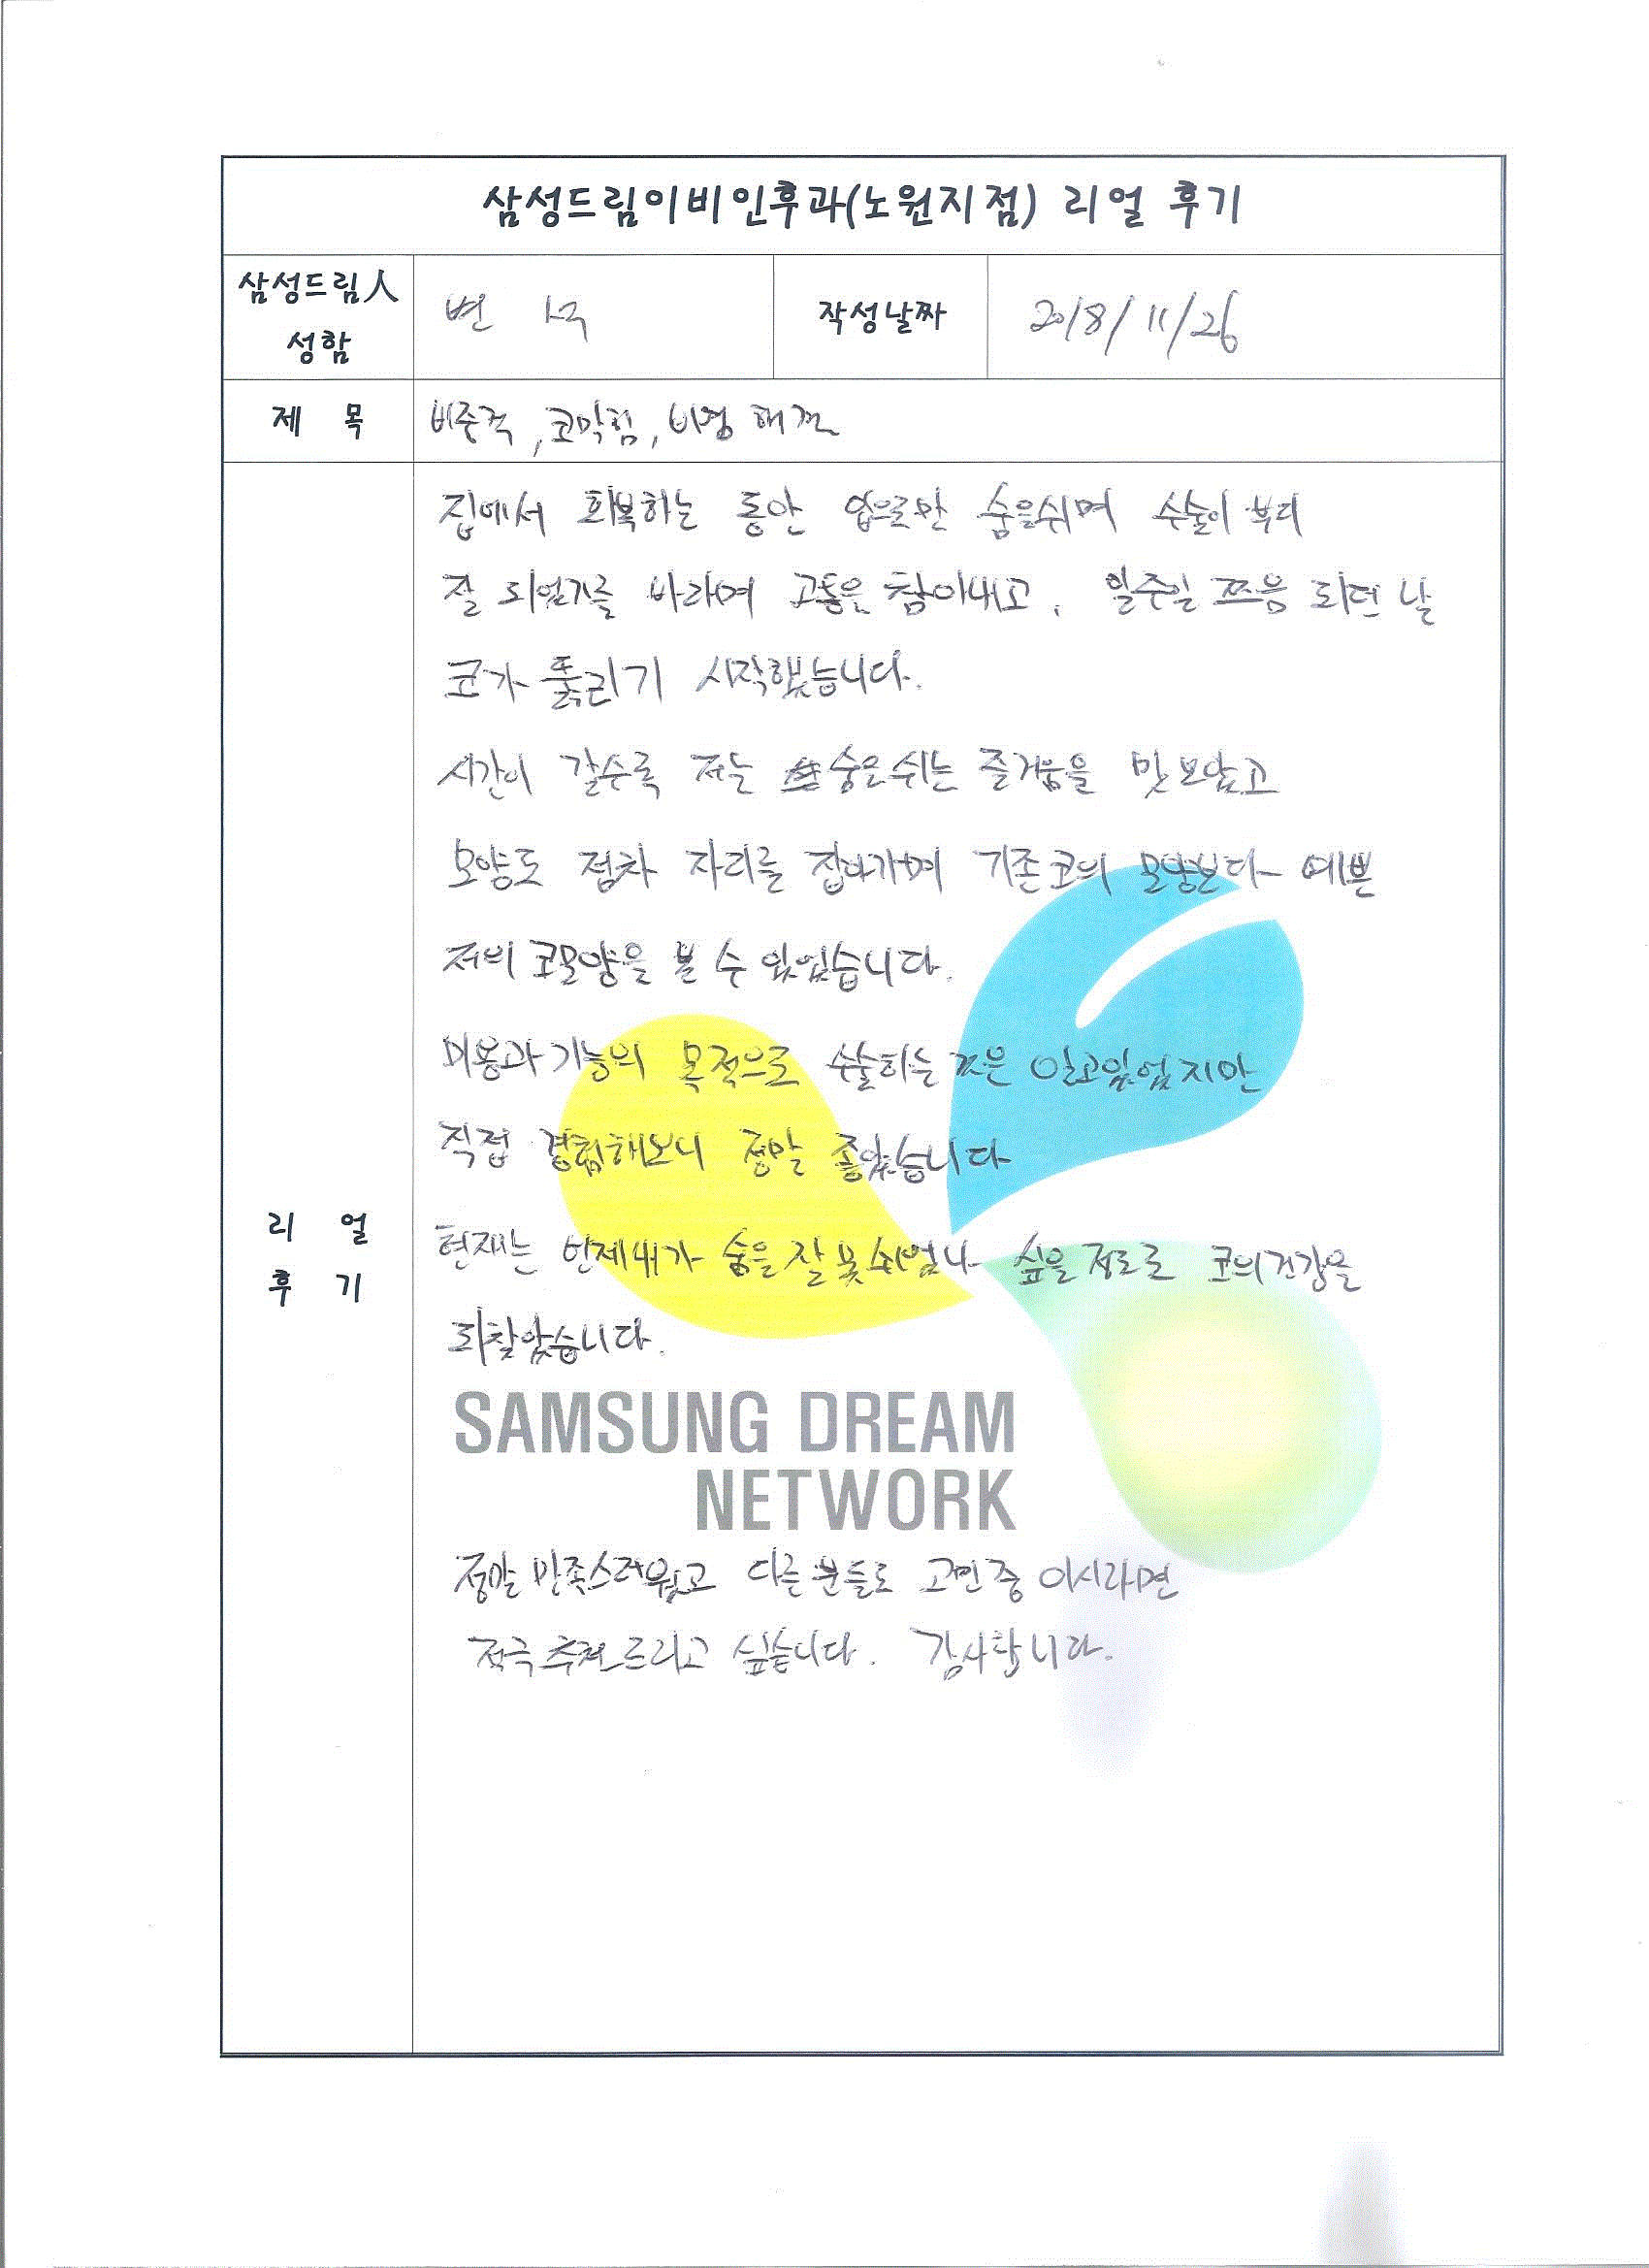 삼성드림이비인후과(노원지점) 리얼 후기
삼성드림人
성함
변
작성날짜
2018/11/26
제 목
비중격, 코막힘, 비염 해결
집에서 회복하는 동안 입으로만 숨을쉬며 수술이 부디
잘 되었기를 바라며 고통을 참아내고, 일주일 쯔음 되던 날
코가 뚫리기 시작했습니다.
시간이 갈수록 저는 숨은쉬는 즐거움을 맛보았고
모양도 점차 자리를 잡아가며 기존코의 모양보다 예쁜
저의 코모양을 볼 수 있었습니다.
미용과 기능의 목적으로 수술하는 것은 알고있었지만
직접 경험해보니 정말 좋았습니다
리 얼
후 기
현재는 언제내가 숨을잘못쉬었나 싶을정도로 코의건강을
되찾았습니다.
SAMSUNG DREAM
NETWORK
정말 만족스러웠고 다른분들도 고민중이시라면
적극추천드리고 싶습니다. 감사합니다.